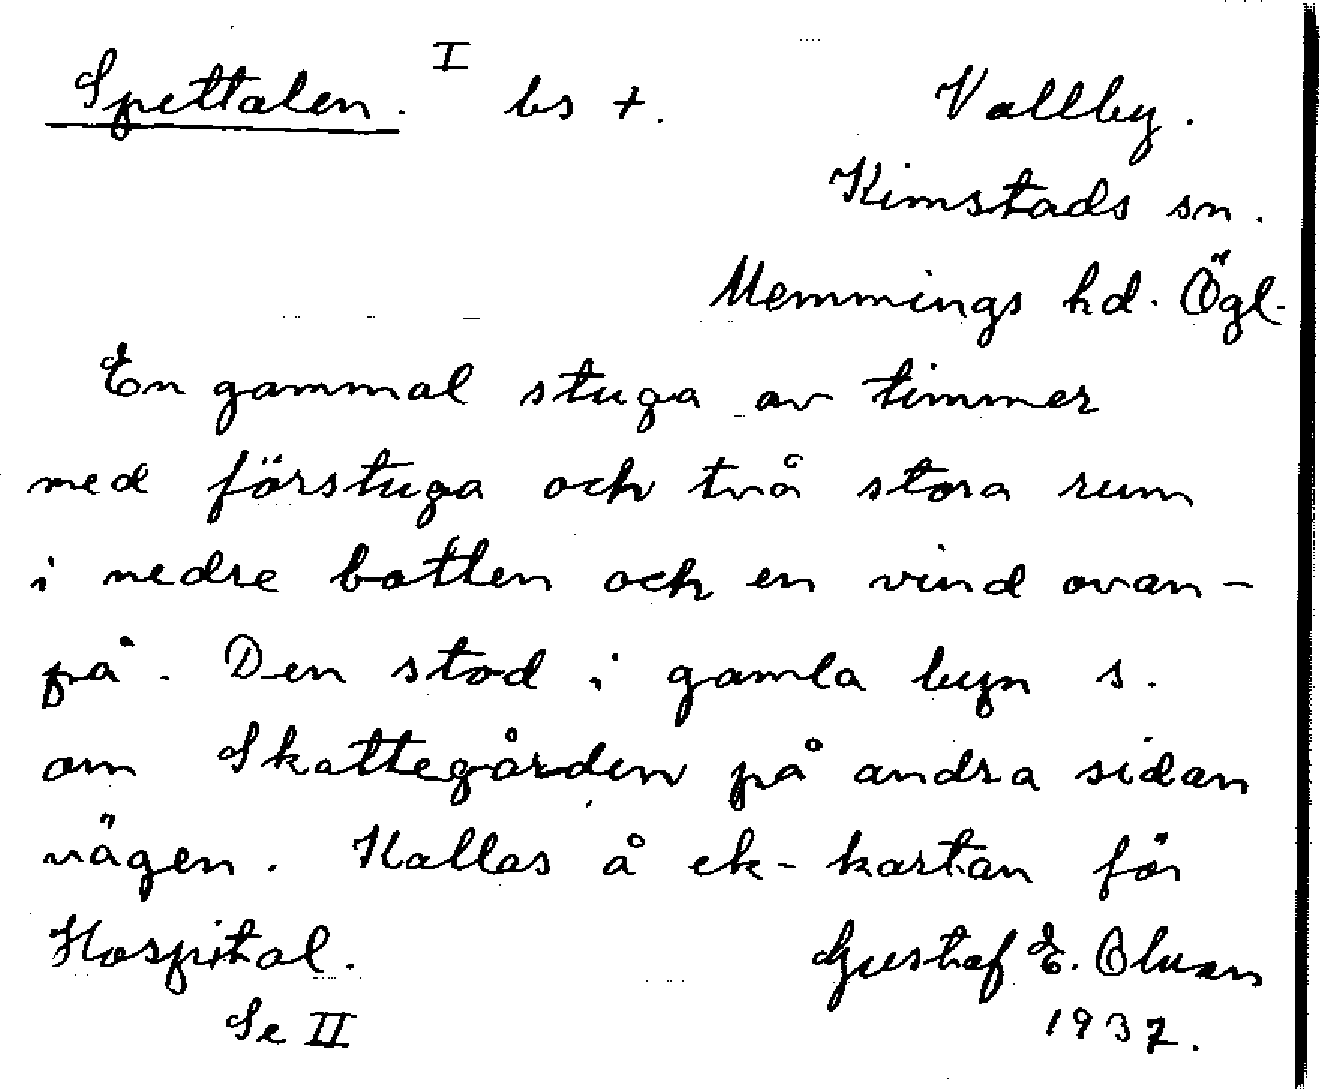 Spettalen. I bs +. Vallby.
Kimstads sn.
Memmings hd. Ögl.
En gammal stuga av timmer
med förstuga och två stora rum
i nedre botten och en vind ovan-
på. Den stod i gamla byn s.
om Skattegården på andra sidan
vägen. Kallas å ek-kartan för
Hospital. Gustaf E. Olsson
Se II 1937.